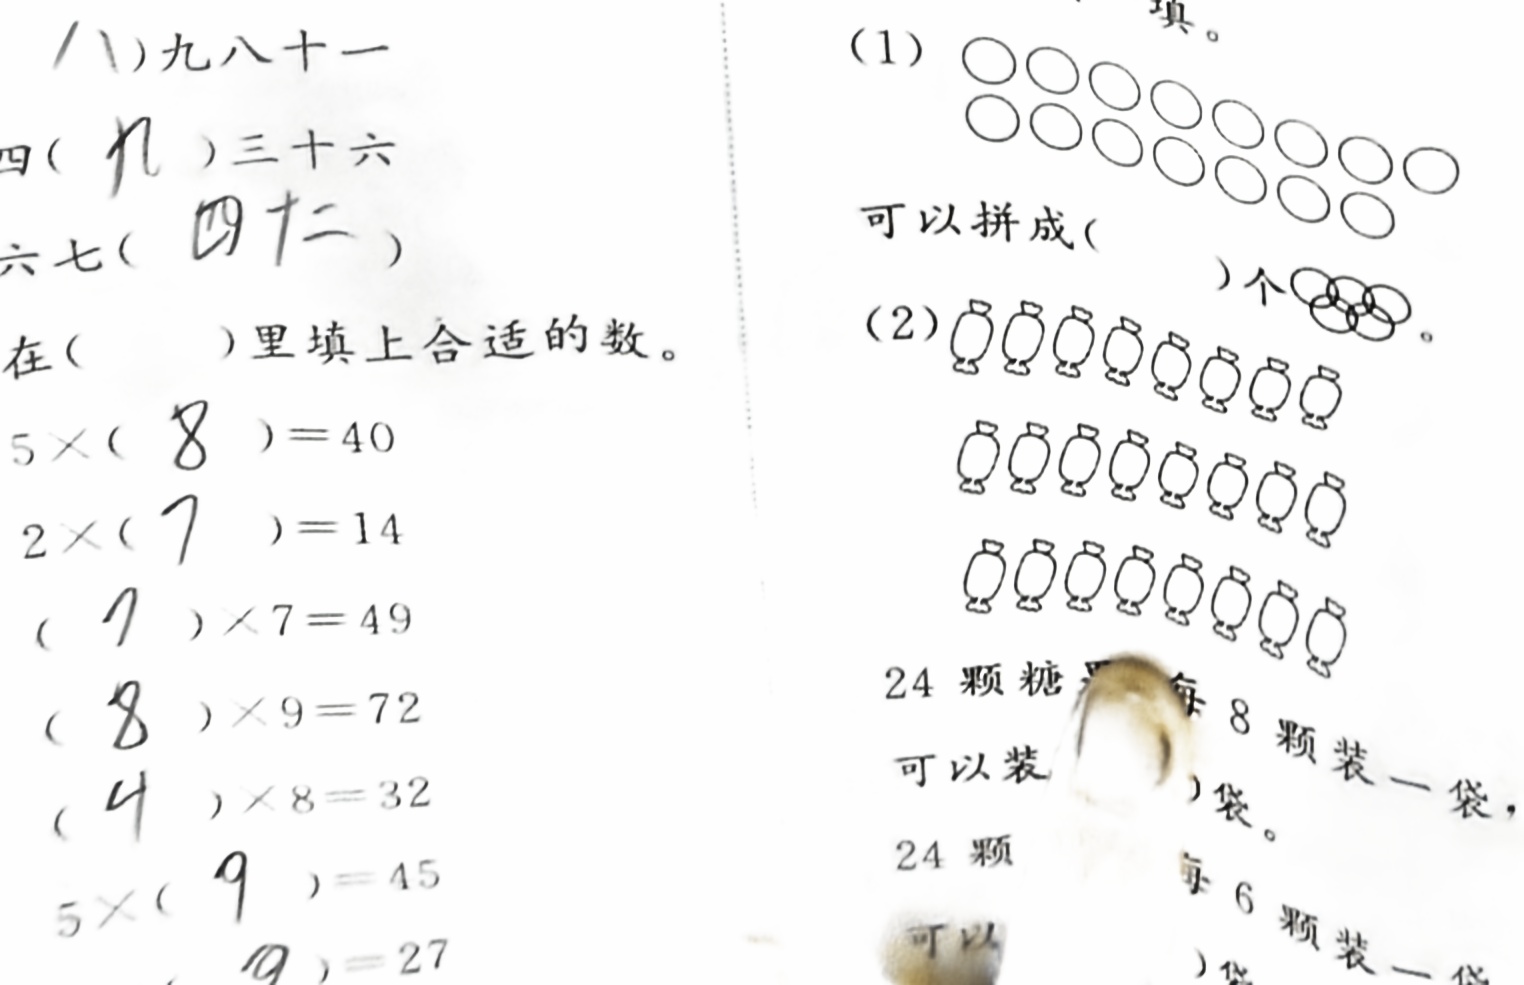 )九八十一
四( 九 )三十六
六七( 四十二 )
在( )里填上合适的数。
5×( 8 )=40
2×( 7 )=14
( 7 )×7=49
( 8 )×9=72
( 4 )×8=32
5×( 9 )=45
( 9 )=27
填。
(1)
可以拼成( )个 。
(2)
24 颗糖 每 8 颗装一袋，
可以装 )袋。
24 颗 每 6 颗装一袋
可以 )袋